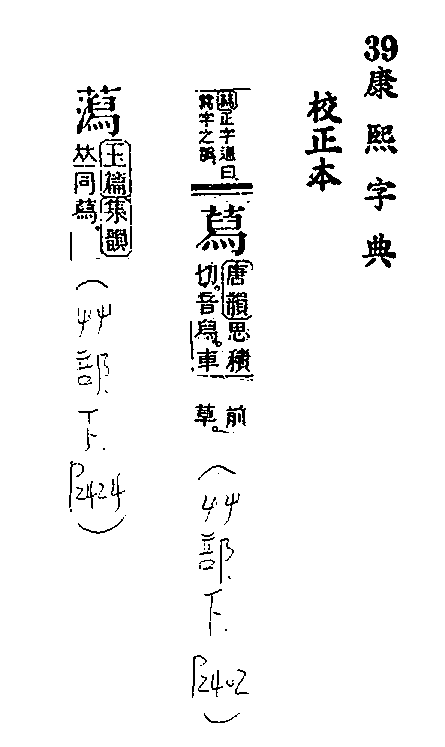 39康熙字典
校正本
正字通曰
字之譌
蕮
唐韻思積
切。音舄。車
前
草。
(艸部.下.P2402)
玉篇集韻
𠀤同蕮。
(艸部.下.P2424)